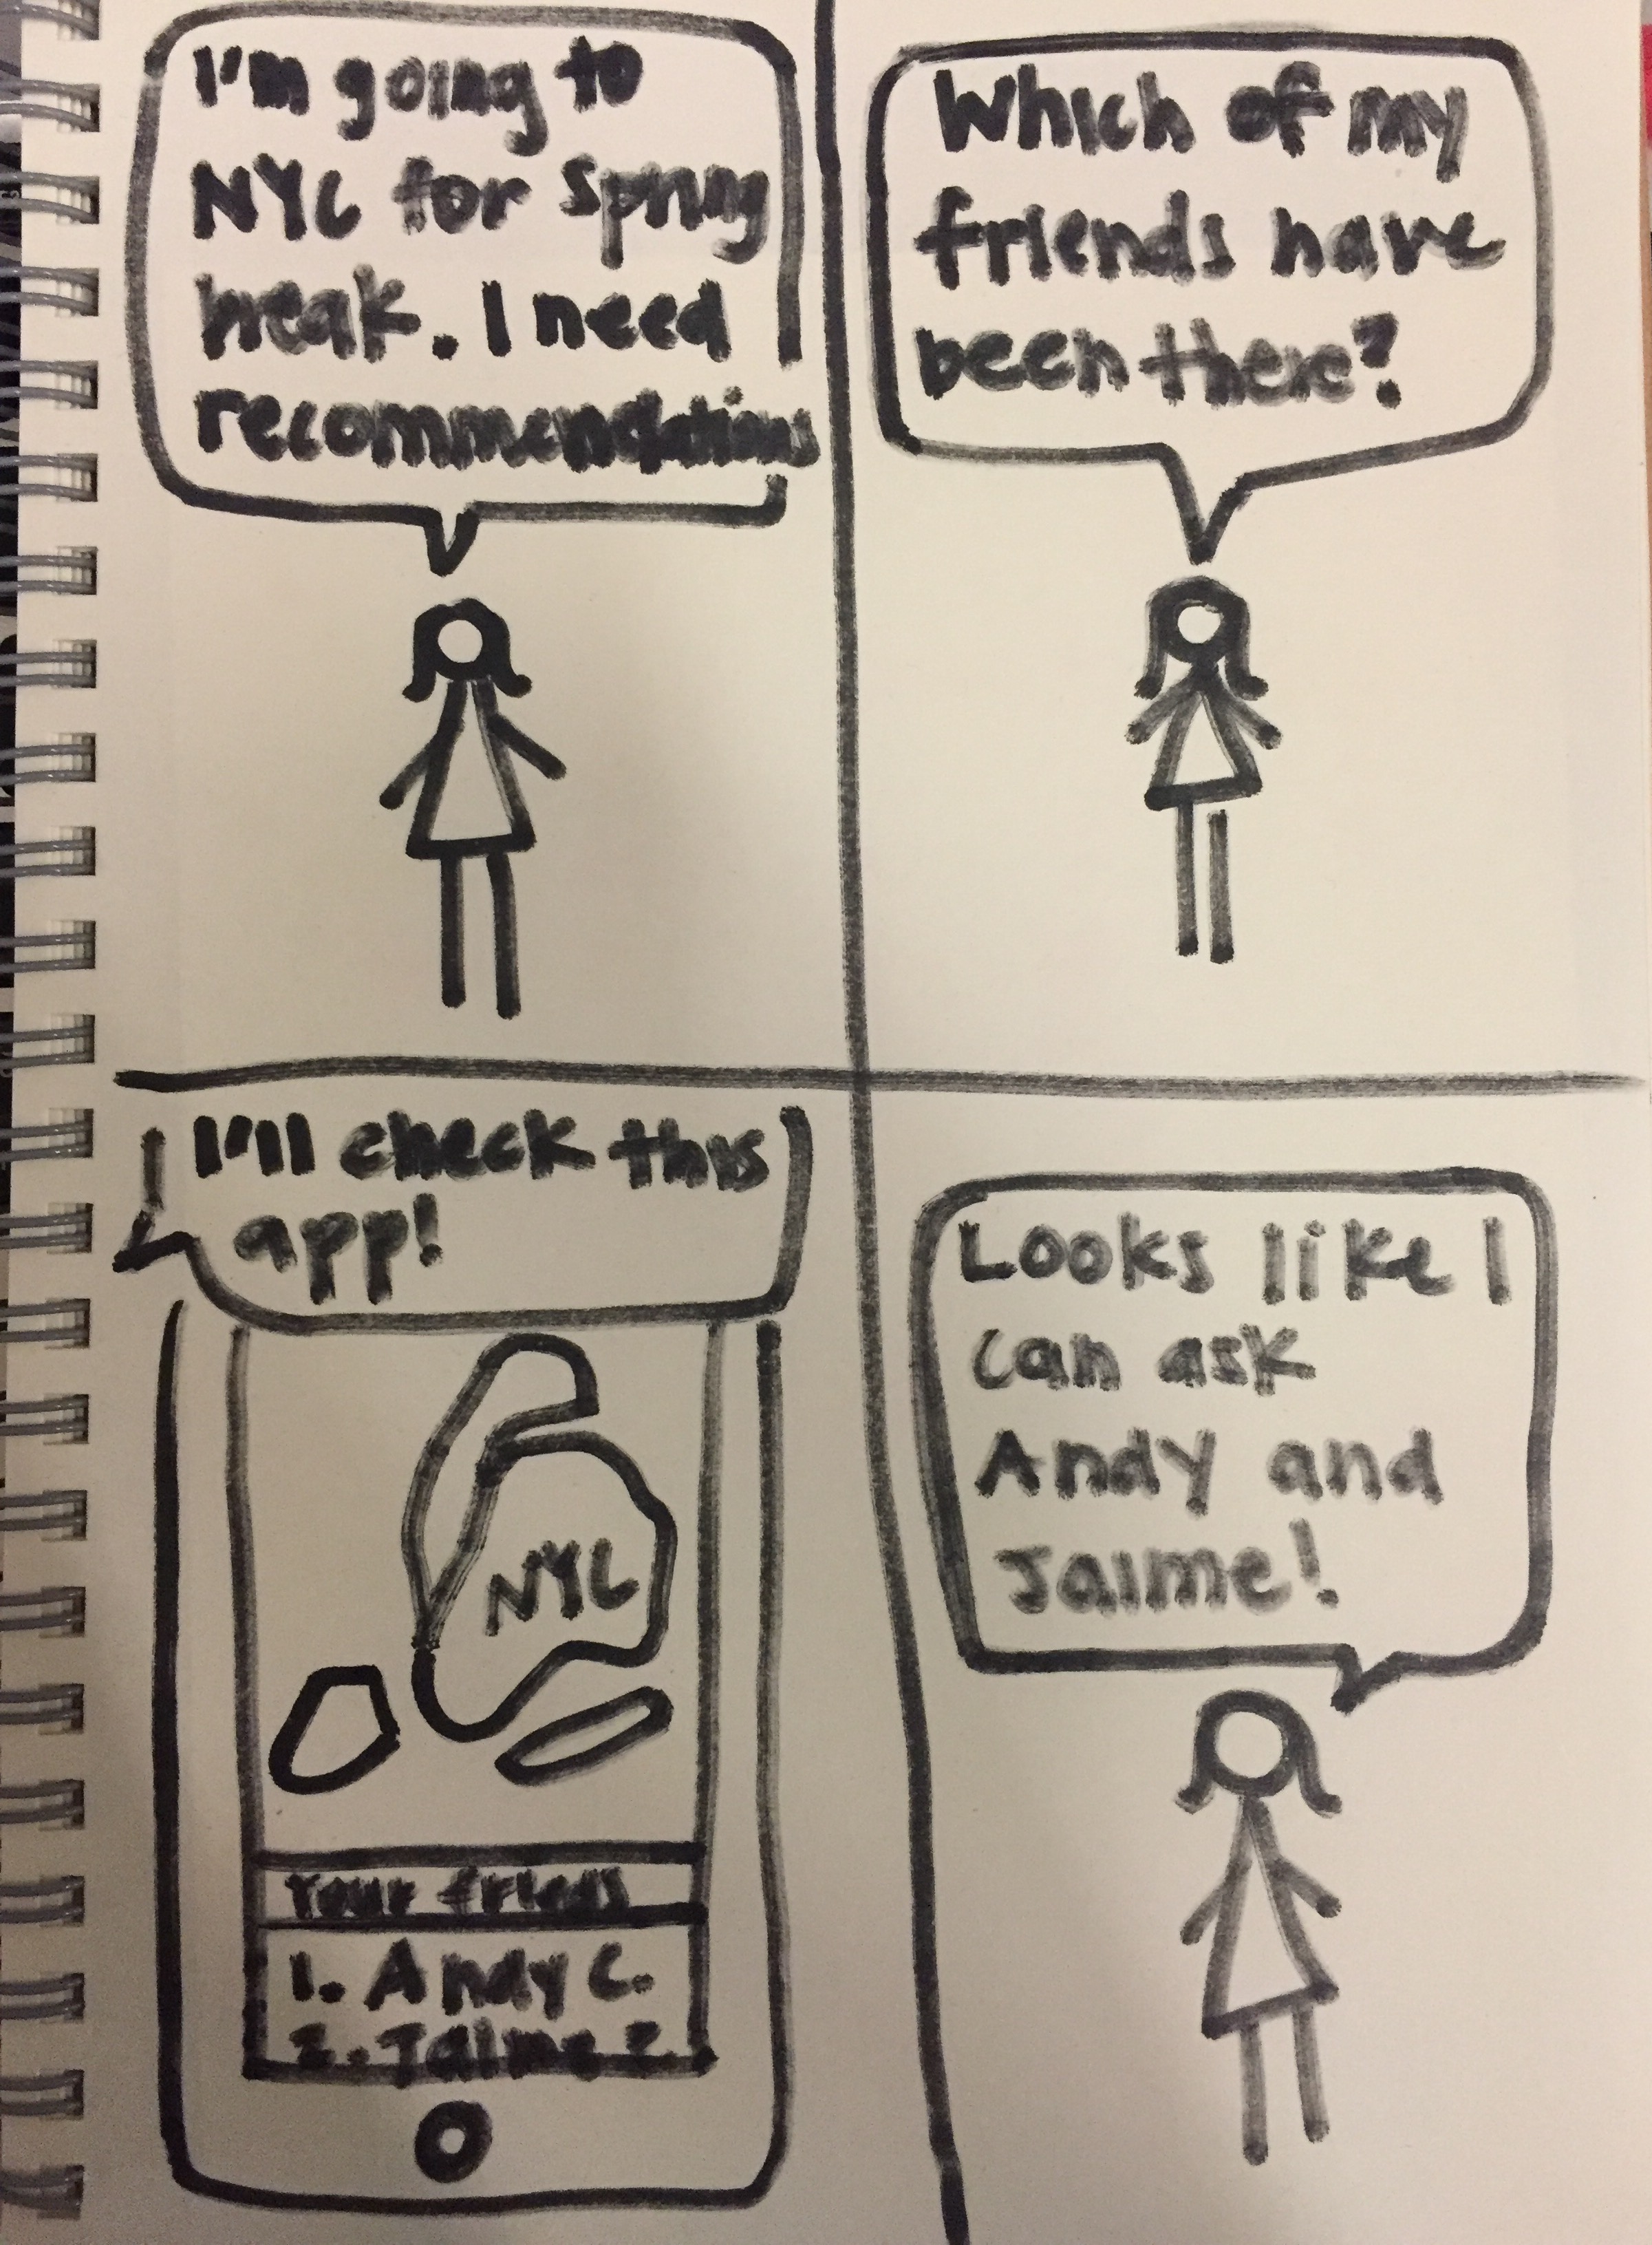 I'm going to
NYC for spring
break. I need
recommendations
Which of my
friends have
been there?
I'll check this
app!
NYC
Your frieds
1. Andy C.
2. Jaime Z.
Looks like I
can ask
Andy and
Jaime!